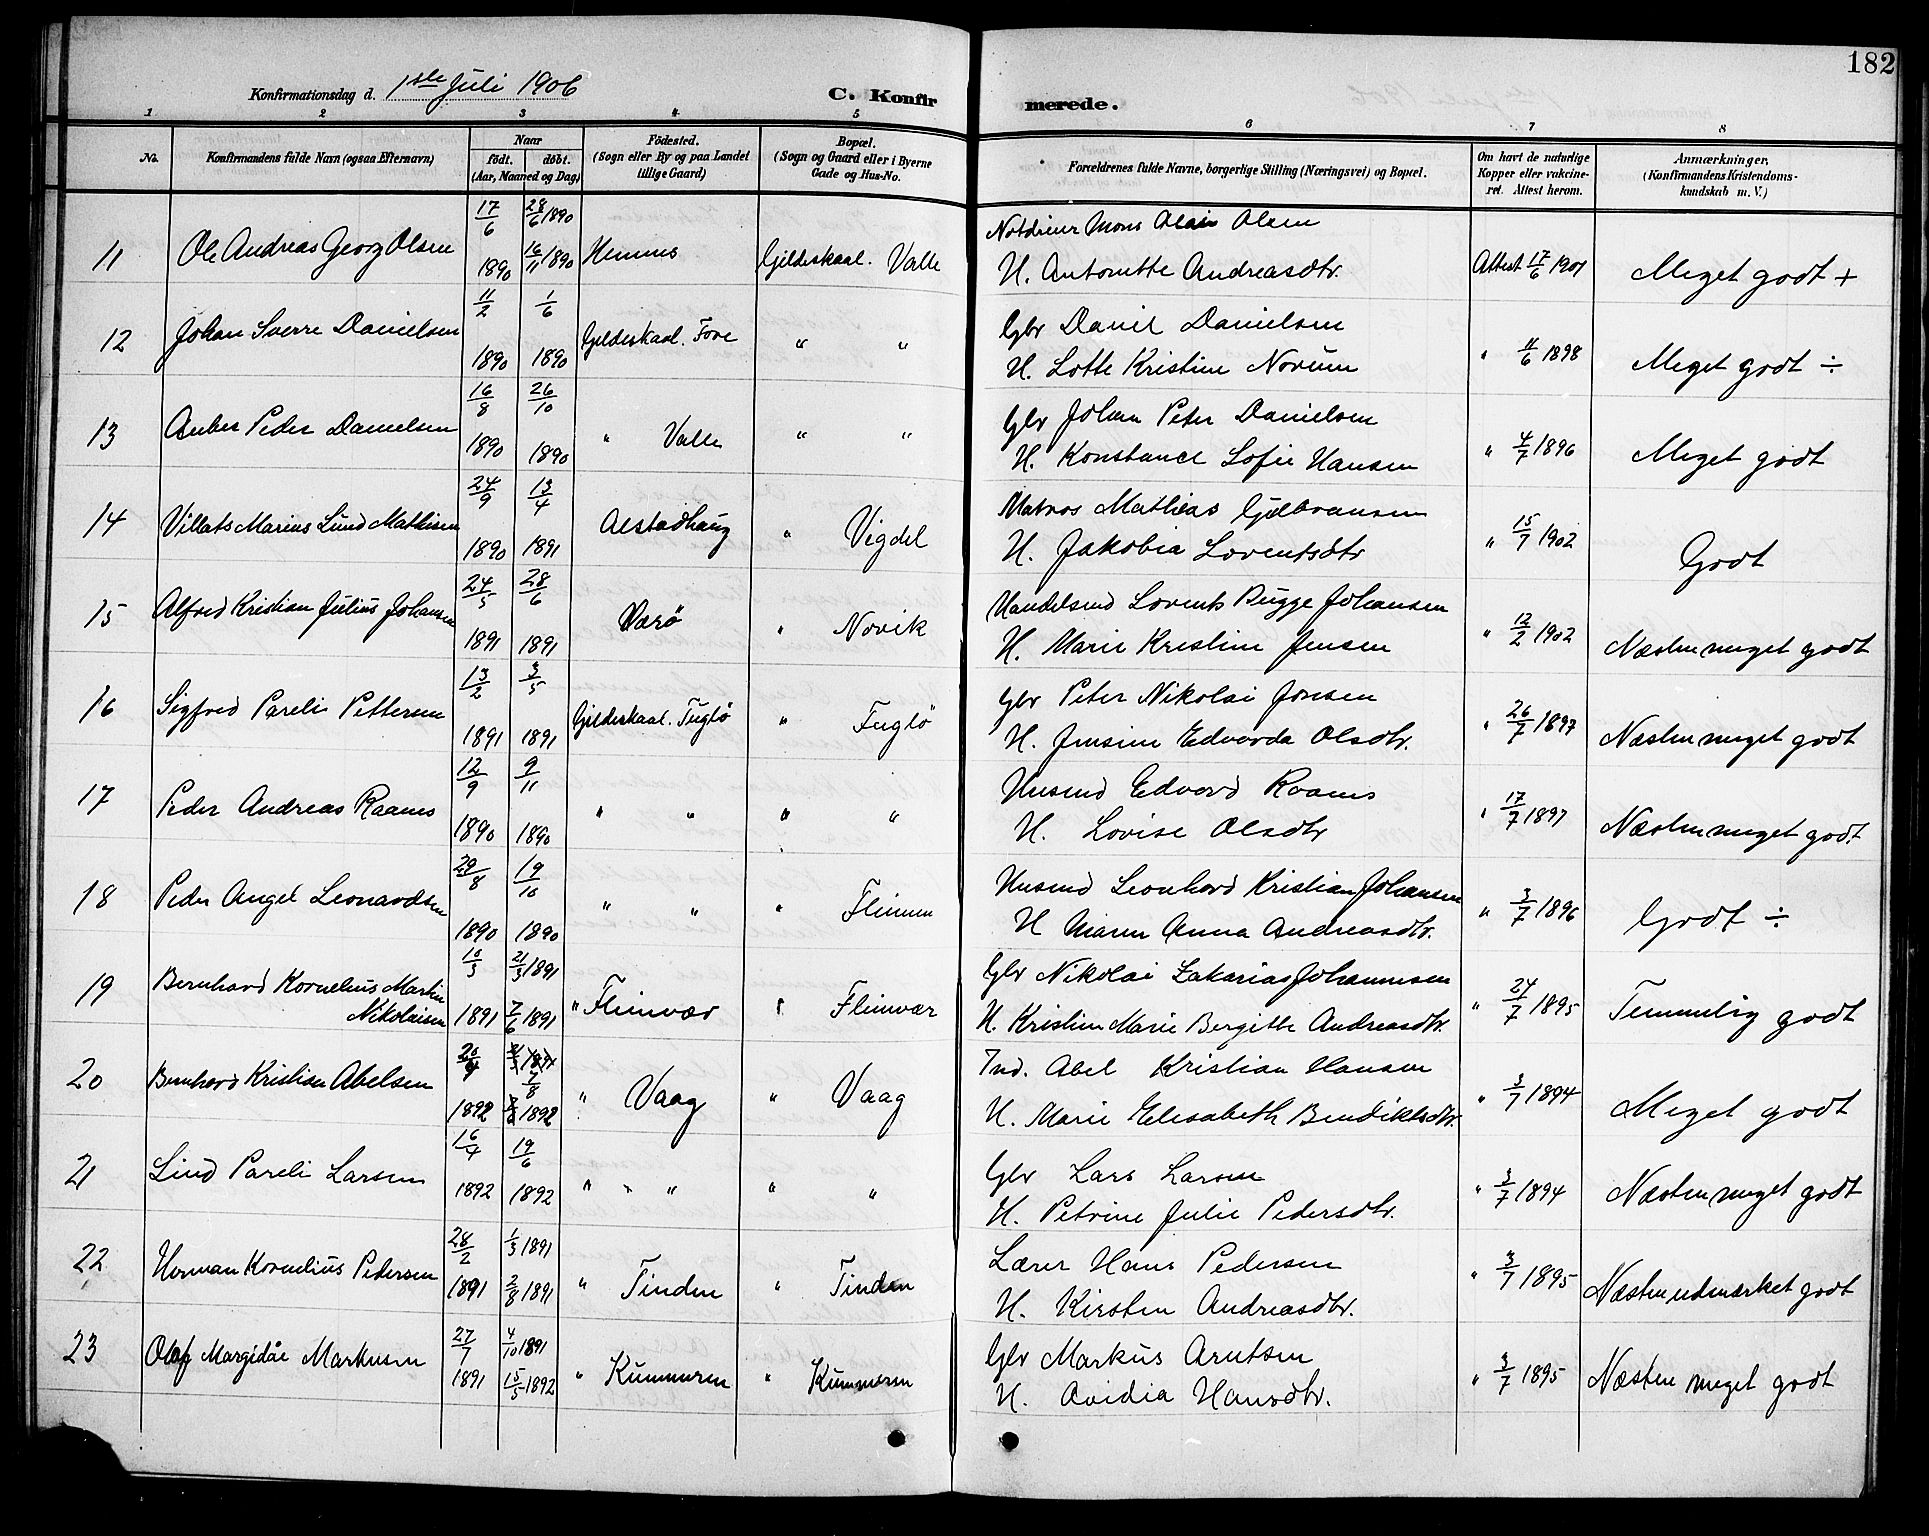 182
Konfirmationsdag d. 1ste Juli 1906
C. Konfirmerede.
1 2 3 4 5 6 7 8
No. Konfirmandens fulde Navn (ogsaa Efternavn) Naar født. døbt. (Aar, Maaned og Dag) Födested. (Sogn eller By og paa Landet tillige Gaard) Bopæl. (Sogn og Gaard eller i Byerne Gade og Hus-No. Forældrenes fulde Navne, borgerlige Stilling (Næringsvei) og Bopæl. Om havt de naturlige Kopper eller vakcineret. Attest herom. Anmærkninger, (Konfirmandens Kristendomskundskab m. V.)
11 Ole Andreas Georg Olsen 17/6 1890 28/6 1890 16/11 1890 Hemnes Gildeskaal. Valle Mons Olsen
H. Antonette Andreasdtr. Attest 17/6 1901 Meget godt +
12 Johan Sverre Danielsen 11/2 1890 1/6 1890 Gildeskaal. Fore " " Gbr Daniel Danielsen
H. Lotte Kristine Norum " 11/6 1898 Meget godt ÷
13 Anber Peder Danielsen 16/8 1890 26/10 1890 " Valle " " Gbr Johan Peter Danielsen
H. Konstance Sofie Hansen " 4/7 1896 Meget godt
14 Villats Marius Lund Mathisen 24/9 1890 13/4 1891 Alstadhaug " Vigdel Matros Mathias Gulbransen
H. Jakobia Lorentsdtr " 15/7 1902 Godt
15 Alfred Kristian Julius Johansen 24/5 1891 28/6 1891 Værø " Novik Handelsmd Lorents Bugge Johansen
H. Marie Kristine Jensen " 12/2 1902 Næsten meget godt
16 Sigfred Pareli Pettersen 13/2 1891 3/5 1891 Gildeskaal. Fuglø " Fuglø Gbr Peter Nikolai Jonsen
H. Jensine Edvarda Olsdtr. " 26/7 1897 Næsten meget godt
17 Peder Andreas Raanes 12/9 1890 9/11 1890 " " " " Husmd Edvard Raanes
H. Lovise Olsdtr " 17/7 1897 Næsten meget godt.
18 Peder Angel Leonardsen 29/8 1890 19/10 1890 " " " Fleinen Husmd Leonhard Kristian Johansen
H Maren Anna Andreasdtr. " 3/7 1896 Godt ÷
19 Bernhard Kornelius Martin
Nikolaisen 10/3 1891 21/3 1891 7/6 1891 " Fleinvær " Fleinvær Gbr Nikolai Zakarias Johannesen
H. Kristine Marie Bergitte Andreasdtr. " 24/7 1895 Temmelig godt
20 Bernhard Kristian Abelsen 1892 7/8 1892 " Vaag " Vaag Ind. Abel Kristian Hansen
H. Marie Elisabeth Bendiktsdtr. " 3/7 1894 Meget godt
21 Lind Pareli Larsen 16/4 1892 19/6 1892 " " " " Gbr Lars Larsen
H. Petrine Julie Pedersdtr. " 3/7 1894 Næsten meget godt
22 Herman Kornelius Pedersen 28/2 1891 1/3 1891 2/8 1891 " Tinden " Tinden Lærer Hans Pedersen
H. Kirsten Andreasdtr. " 3/7 1895 Næsten udmærket godt
23 Olaf Margidåe Markusen 27/7 1891 4/10 1891 15/5 1892 " Kunneren " Kunneren Gbr Markus Arntsen
H. Ovidia Hansdtr. " 3/7 1895 Næsten meget godt